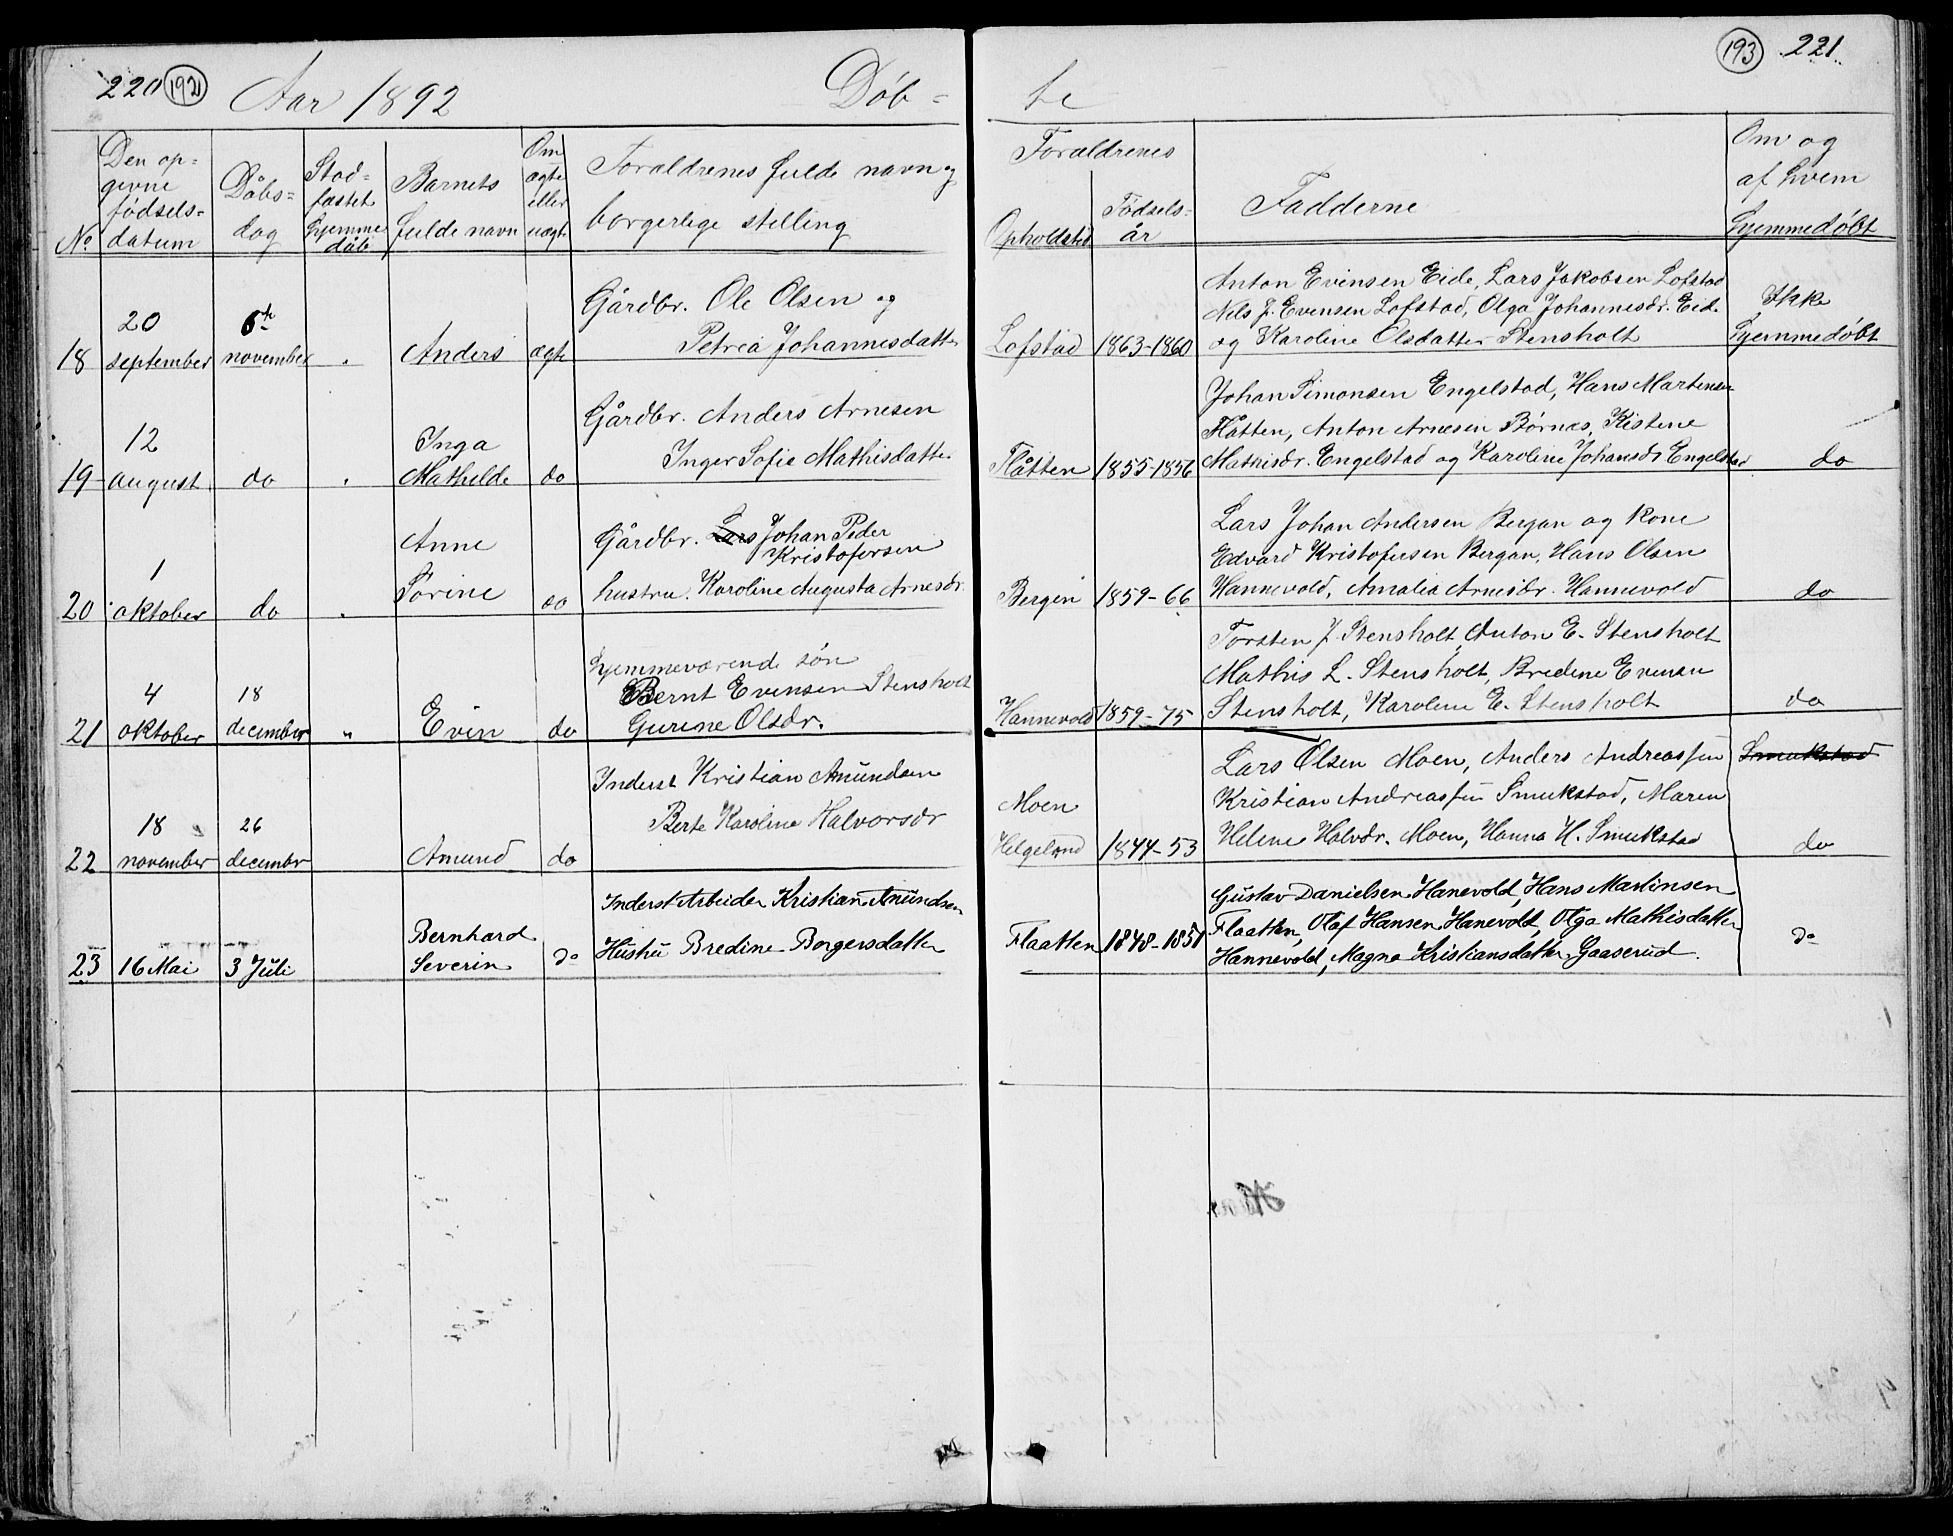 220 192 Aar 1892 Døb-
te 193 221.
No
Den op-
givne
fødsels-
datum
Dåbs-
dag
Stad-
fæstet
hjemme
dåb
Barnets
fulde navn
Om
ægte
eller
uægte
Forældrenes fulde navn og
borgerlige stilling
Forældrenes
Opholdsted
Fødsels-
år
Fadderne
Om og
af hvem
hjemmedøbt
18
20
september
6te
november
Anders
ægte
Gårdbr. Ole Olsen og
Petrea Johannesdatter
Lofstad
1863-1860
Anton Evensen Eide, Lars Jakobsen Lofstad
Nils J. Evensen Lofstad, Olga Johannesdr. Eide
og Karoline Olsdatter Stensholt
Ikke
hjemmedøbt
19
12
august
do
Inga
Mathilde
do
Gårdbr. Anders Arnesen
Inger Sofie Mathisdatter
Flåtten
1855-1856
Johan Simonsen Engelstad, Hans Martinsen
Flåtten, Anton Arnesen Børnes, Kistene
Mathisdr. Engelstad og Karoline Johansdr Engelstad
do
20
1
oktober
do
Anne
Sørine
do
Gårdbr. Lars Johan Peder
Kristofersen
hustru. Karoline Augusta Arnesdr.
Bergen
1859-66
Lars Johan Andersen Bergan og kone
Edvard Kristofersen Bergan, Hans Olsen
Hannevold, Amalia Arnesdr. Hannevold
do
21
4
oktober
18
december
"
Evin
do
hjemmeværende søn
Bernt Evensen Stensholt
Gurine Olsdr.
Hannevold
1859-75
Torsten J. Stensholt, Anton E. Stensholt
Mathis L. Stensholt, Bredine Evensen
Stensholt, Karoline E. Stensholt
do
22
18
november
26
decembr
Amund
do
Inderst Kristian Amundsen
Berte Karoline Halvorsdr
Moen
Helgeland
1844-53
Lars Olsen Moen, Anders Andreassen
Kristian Andreassen Smukstad, Maren
Helene Halvdr. Moen, Hanna H. Smukstad
Smukstad
do
23
16 Mai
3 Juli
Bernhard
Severin
do
Inderst Arbeider Kristian Amundsen
Hustru Bredine Borgersdatter
Flaatten
1848-1851
Gustav Danielsen Hanevold, Hans Martinsen
Flaatten, Olaf Hansen Hanevold, Olga Mathisdatter
Hannevold, Magna Kristiansdatter Gaaserud.
do